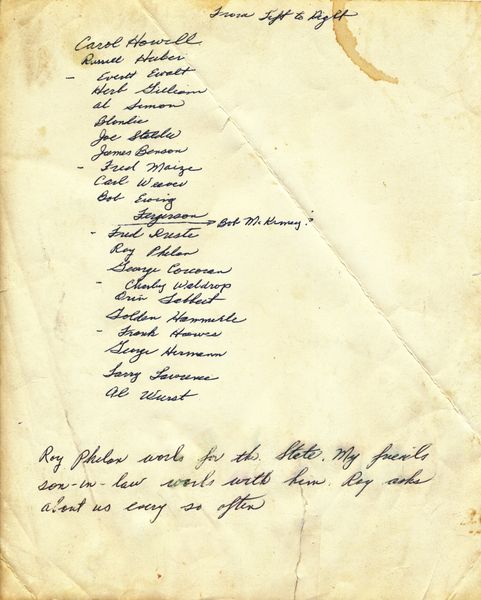 From Left to Right
Carol Howell
Russell Heiber
- Everett Ewalt
Herb Gilliam
Al Simon
Blondie
Joe
James Benson
- Fred Maize
Carl Weaver
Bob Ewing
Fergerson → Bob McKinney?
- Fred
Roy Phelan
George Corcoran
- Charley Waldrop
Orin
Golden Hammerle
- Frank Hawes
George Hermann
Larry Lawrence
Al Wurst
Roy Phelan works for the State. My friends
son-in-law works with him. Roy asks
about us every so often